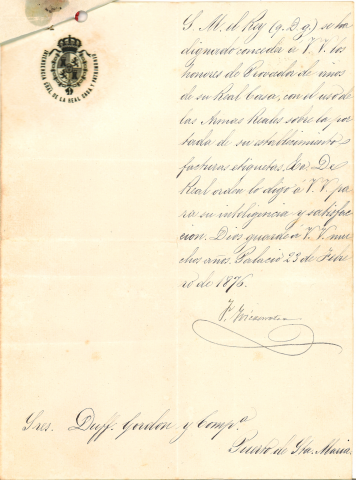 INTENDENCIA GRAL. DE LA REAL CASA Y PATRIMONIO
S. M. el Rey (q. D. g.) se ha
dignado conceder á V.V. los
honores de Proveedor de vinos
de su Real Casa, con el uso de
las Armas Reales sobre la por
tada de su establecimiento
facturas etiquetas, &a. De
Real orden lo digo á V.V. pa
ra su inteligencia y satisfac
cion. Dios guarde á V.V. mu
chos años. Palacio 23 de Febre
ro de 1876.
F.
Sres. Duff Gordon y Compª
Puerto de Sta. Maria.